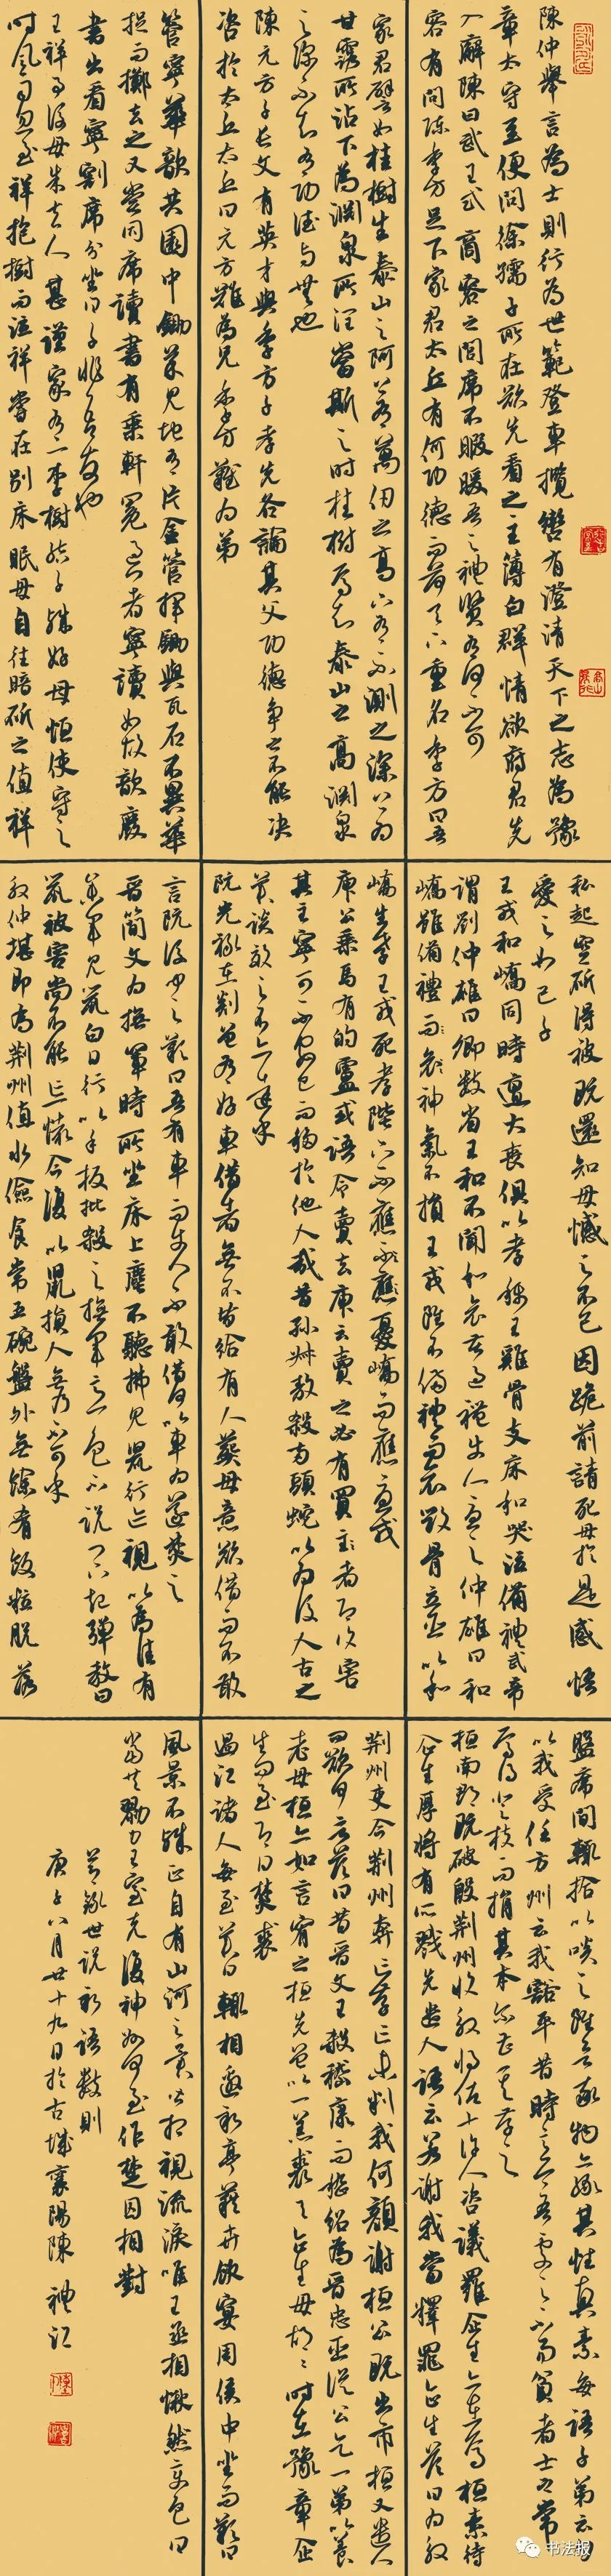 陳仲舉言為士則行為世範登車攬轡有澄清天下之志為豫
章太守至便問徐孺子所在欲先看之主簿白群情欲府君先
入廨陳曰武王式商容之閭席不暇暖吾之禮賢有何不可
客有問陳季方足下家君太丘有何功德而荷天下重名季方曰吾
家君譬如桂樹生泰山之阿上有萬仞之高下有不測之深上為
甘露所沾下為淵泉所潤當斯之時桂樹焉知泰山之高淵泉
之深不知有功德與無也
陳元方子長文有英才與季方子孝先各論其父功德爭之不能決
咨於太丘太丘曰元方難為兄季方難為弟
管寧華歆共園中鋤菜見地有片金管揮鋤與瓦石不異華
捉而擲去之又嘗同席讀書有乘軒冕過門者寧讀如故歆廢
書出看寧割席分坐曰子非吾友也
王祥事後母朱夫人甚謹家有一李樹結子殊好母恒使守之
時風雨忽至祥抱樹而泣祥嘗在別床眠母自往暗斫之值祥
私起空斫得被既還知母憾之不已因跪前請死母於是感悟
愛之如己子
王戎和嶠同時遭大喪俱以孝稱王雞骨支床和哭泣備禮武帝
謂劉仲雄曰卿數省王和不聞和哀苦過禮使人憂之仲雄曰和
嶠雖備禮而哀神氣不損王戎雖不備禮而哀毀骨立臣以和
嶠生孝王戎死孝陛下不應憂嶠而應憂戎
庾公乘馬有的盧或語令賣去庾云賣之必有買者即復害
其主寧可不安己而移於他人哉昔孫叔敖殺兩頭蛇以為後人古之
美談效之不亦達乎
阮光祿在剡曾有好車借者無不皆給有人葬母意欲借而不敢
言阮後聞之歎曰吾有車而使人不敢借何以車為遂焚之
晉簡文為撫軍時所坐床上塵不聽拂見鼠行跡視以為佳有
參軍見鼠白日行以手板批殺之撫軍意色不說門下起彈教曰
鼠被害尚不能忘懷今復以鼠損人無乃不可乎
殷仲堪即為荊州值水儉食常五碗盤外無餘肴飯粒脫落
盤席間輒拾以啖之雖欲率物亦緣其性真素每語子弟云勿
以我受任方州云我豁平昔時意今吾處之不易貧者士之常
焉得登枝而捐其本爾曹其存之
桓南郡既破殷荊州收殷將佐十許人咨議羅企生亦在焉桓素待
企生厚將有所戮先遣人語云若謝我當釋罪企生答曰為殷
荊州吏今荊州奔亡存亡未判我何顏謝桓公既出市桓又遣人
問欲何言答曰昔晉文王殺嵇康而嵇紹為晉忠臣從公乞一弟以養
老母桓亦如言宥之桓先曾以一羔裘與企生母胡胡時在豫章企
生問至即日焚裘
過江諸人每至美日輒相邀新亭藉卉飲宴周侯中坐而歎曰
風景不殊正自有山河之異皆相視流淚唯王丞相愀然變色曰
當共勠力王室克復神州何至作楚囚相對
節錄世說新語數則
庚子八月廿十九日於古城襄陽陳禮江
书法报